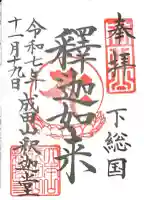 奉拝
下総国
釋迦如来
令和七年
十一月十九日
成田山釈迦堂